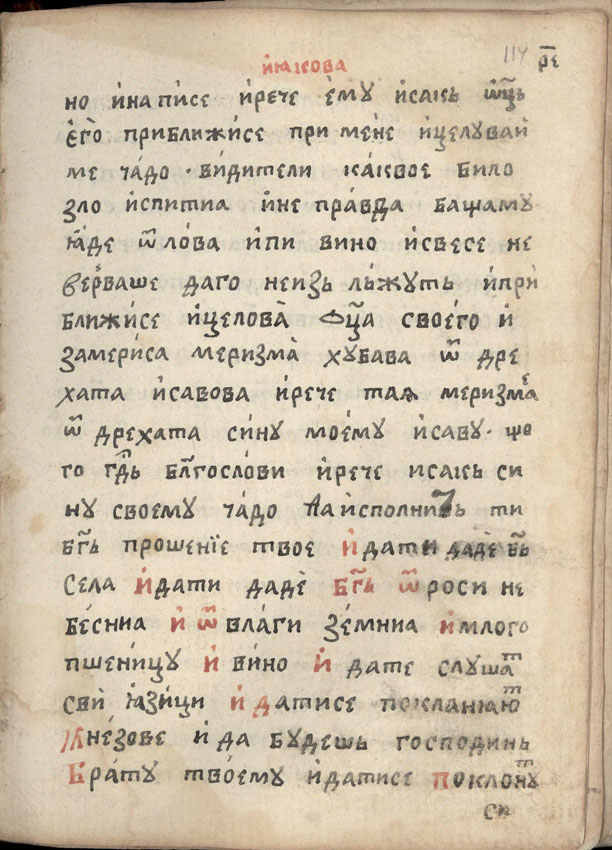 иꙗкова 114 р҃е
но и́напи́се и́рече є҆мꙋ и҆сакь ѿц҃ь
є҆го̀ приближи́се при мене и҆целꙋваи́
ме ча́до · ви́дители ка́квое било
зло и҆спитиа и҆не пра́вда бащамꙋ
ꙗ҆́де ѿ лова и҆пи вино и҆свесе не
ве́рваше даго неизь льжꙋть и҆при
ближи́се и҆целова̀ ѻц҃а своего и҆
замери́са меризма̀ хꙋбава ѿ дре
хата и҆савова и҆рече таꙗ меризма̀
ѿ дрехата си́нꙋ мое́мꙋ и҆савꙋ · що
го гд҃ь бл҃гослови и҆рече исакь си
нꙋ своемꙋ ча́до да исполнить ти
бг҃ь прошенїе твое и҆дати дадѐ бг҃ь
села и҆дати дадѐ бг҃ь ѿ роси не
бе́сниа и҆ ѿ вла́ги зе́мниа и҆млого
пшени́цꙋ и҆ ви́но и҆ дате слꙋшаⷮ
сви̏ ꙗ҆зи́ци и҆ датисе покланꙗюⷮ
кне́зове и҆ да бꙋ́дешь господинь
бра́тꙋ твое́мꙋ и҆датисе поклонꙋⷮ
си